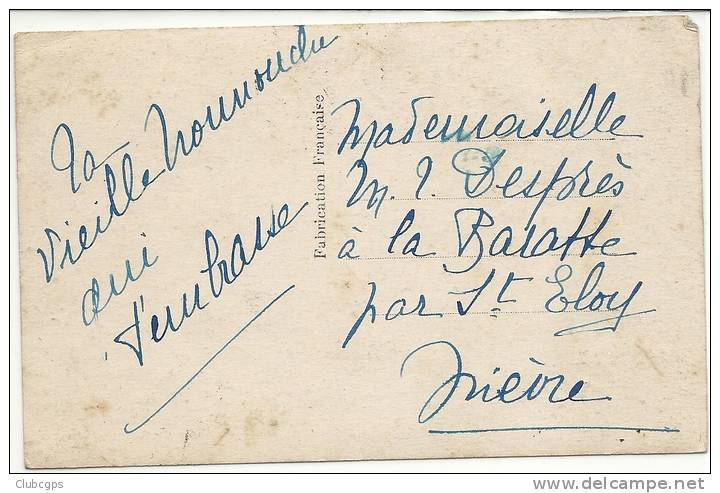 Ta
Vieille Nounouche
qui
t'embrasse
Fabrication Française
Mademoiselle
M. J. Desprès
à la Baratte
par St Eloy
Nièvre
Clubcgps
delcampe.net